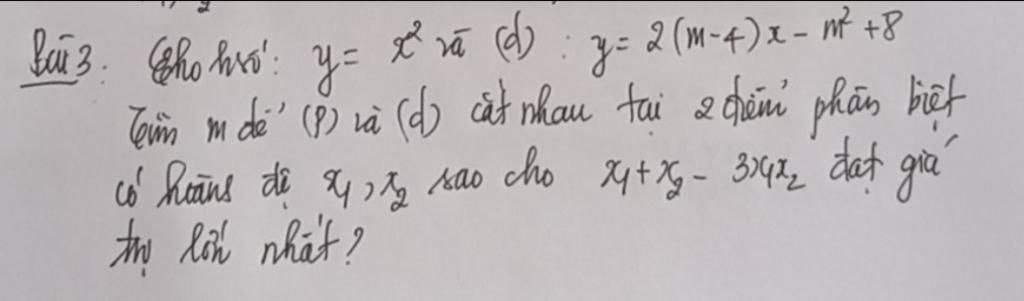 Bài 3. Cho hsố: y = x² và (d): y = 2(m-4)x - m² + 8
Tìm m để (P) và (d) cắt nhau tại 2 điểm phân biệt
có hoành độ x₁, x₂ sao cho x₁ + x₂ - 3x₁x₂ đạt giá
trị lớn nhất?